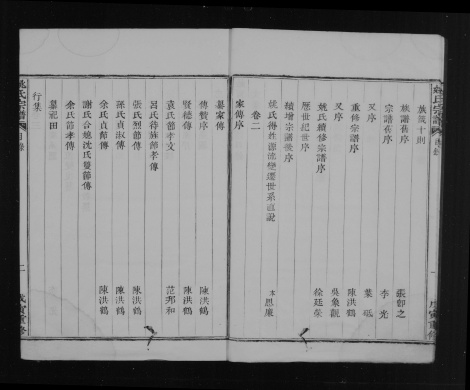 姚氏宗譜 目錄
族箴十則
族譜舊序 張卽之
宗譜舊序 李光
又序 葉砥
重修宗譜序 陳洪鶴
又序 吳象觀
姚氏續修宗譜序 徐廷榮
歷世紀世序
續增宗譜後序
姚氏得姓源流變遷世系直說 本恩廉
卷二
家傳序
纂家傳
傳贊序 陳洪鶴
賢德傳 陳洪鶴
袁氏節孝文 范邦和
呂氏待旌節孝傳
張氏烈節傳 陳洪鶴
孫氏貞淑傳 陳洪鶴
余氏貞節傳 陳洪鶴
謝氏合魏沈氏雙節傳
余氏節孝傳
墓祀田
行集
姚氏宗譜 目錄
二
戊寅重修